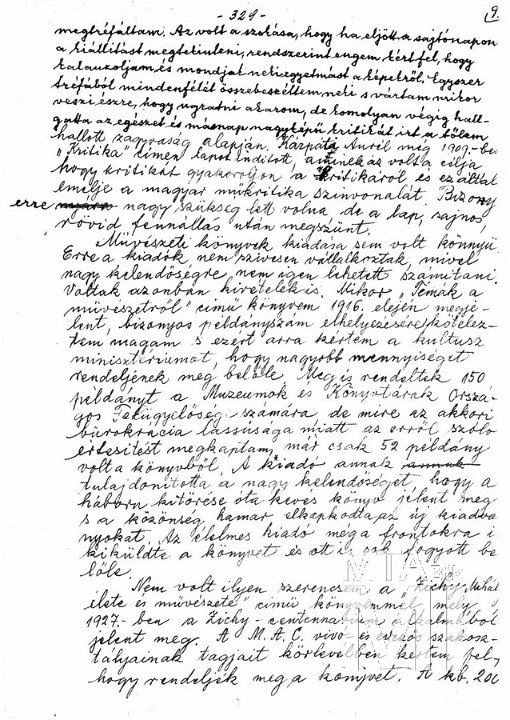 - 329 -
9.
megtréfáltam. Az volt a szokása, hogy ha eljött a sajtónapon
a kiállítást megtekinteni, rendszerint engem kért fel, hogy
kalauzoljam és mondjak neki egyetmást a képekről. Egyszer
tréfából mindenfélét összebeszéltem neki s vártam mikor
veszi észre, hogy ugratni akarom, de komolyan végig hall-
gatta az egészet és másnap nagyképű kritikát írt a tőlem
hallott zagyvaság alapján. Kárpáti Aurél még 1909-ben
"Kritika" címen lapot indított, aminek az volt a célja
hogy kritikát gyakoroljon a kritikáról és ezáltal
emelje a magyar műkritika színvonalát. Bizony
erre nagy szükség lett volna, de a lap, sajnos,
rövid fennállás után megszünt.
Művészeti könyvek kiadása sem volt könnyű
Erre a kiadók nem szívesen vállalkoztak, mivel
nagy kelendőségre nem igen lehetett számítani.
Voltak azonban kivételek is. Mikor "Témák a
művészetről" című könyvem 1916. elején megje-
lent, bizonyos példányszám elhelyezésére kötelez-
tem magam s ezért arra kértem a kultusz
minisztériumot, hogy nagyobb mennyiséget
rendeljenek meg belőle. Meg is rendeltek 150
példányt a Múzeumok és Könyvtárak Orszá-
gos Felügyelőség számára, de mire az akkori
bürokrácia lassúsága miatt az erről szóló
értesítést megkaptam, már csak 52 példány
volt a könyvből. A kiadó annak
tulajdonította a nagy kelendőséget, hogy a
háború kitörése óta kevés könyv jelent meg
s a közönség hamar elkapkodta az új kiadvá
nyokat. Az élelmes kiadó még a frontokra i
kiküldte a könyvet és ott is sok fogyott be
lőle.
Nem volt ilyen szerencsém a "Zichy Mihál
élete és művészete" című könyvemmel, mely
1927-ben a Zichy-centennárium alkalmából
jelent meg. A M.A.C. vívó- és evezős szakosz-
tályainak tagjait körlevélben kértem fel,
hogy rendeljék meg a könyvet. A kb. 200